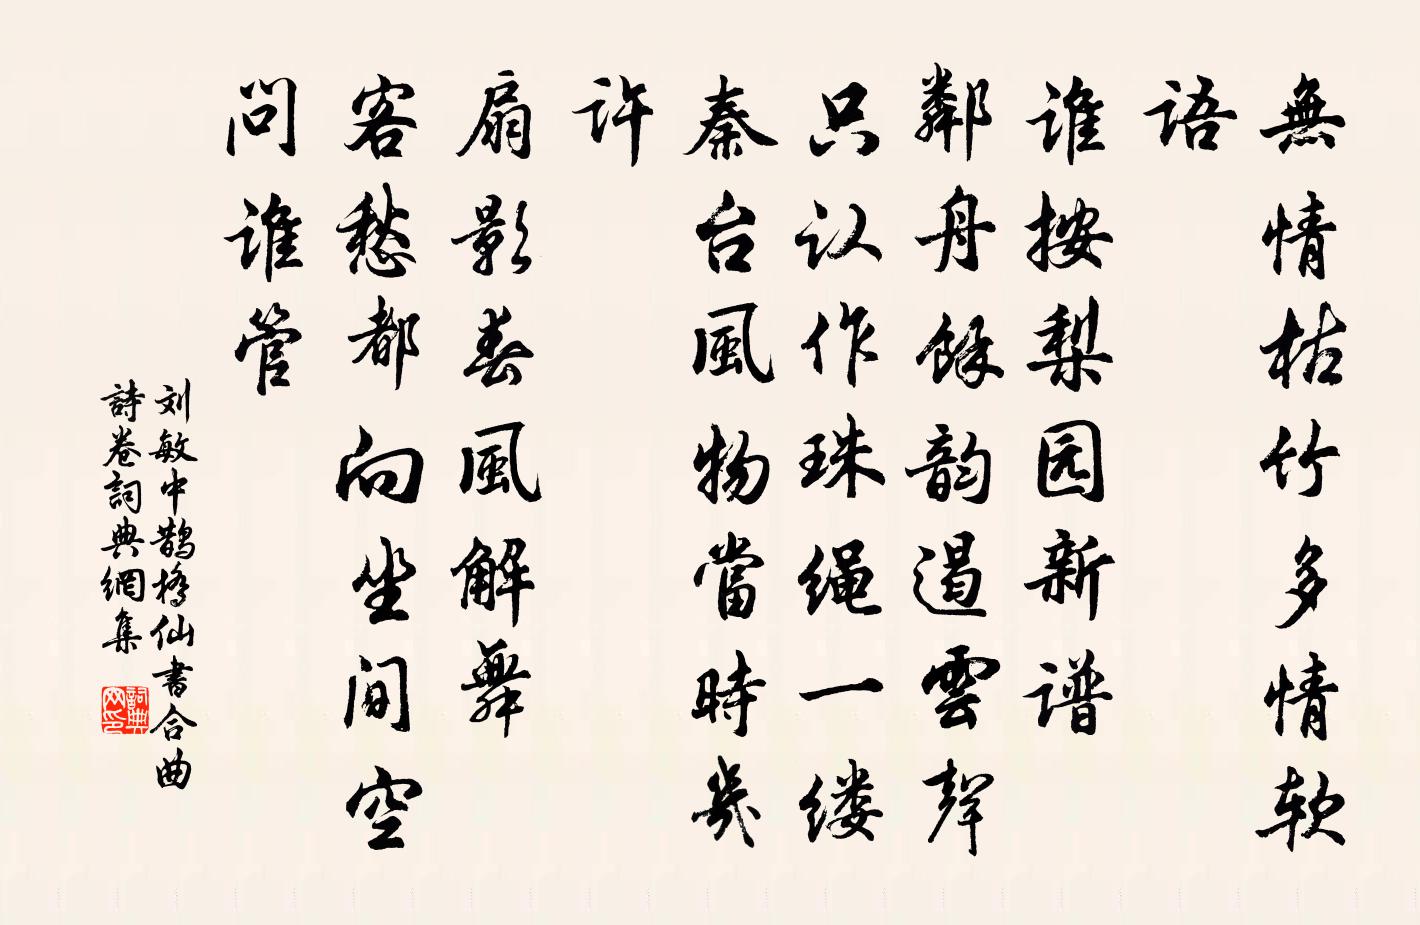 無情枯竹多情软
语
谁按梨园新谱
鄰舟餘韵遏雲聲
只认作珠绳一缕
秦台風物當時幾
许
扇影春風解舞
客愁都向坐間空
问谁管
刘敏中鹊橋仙書合曲
詩卷詞典網集
詞典
网印